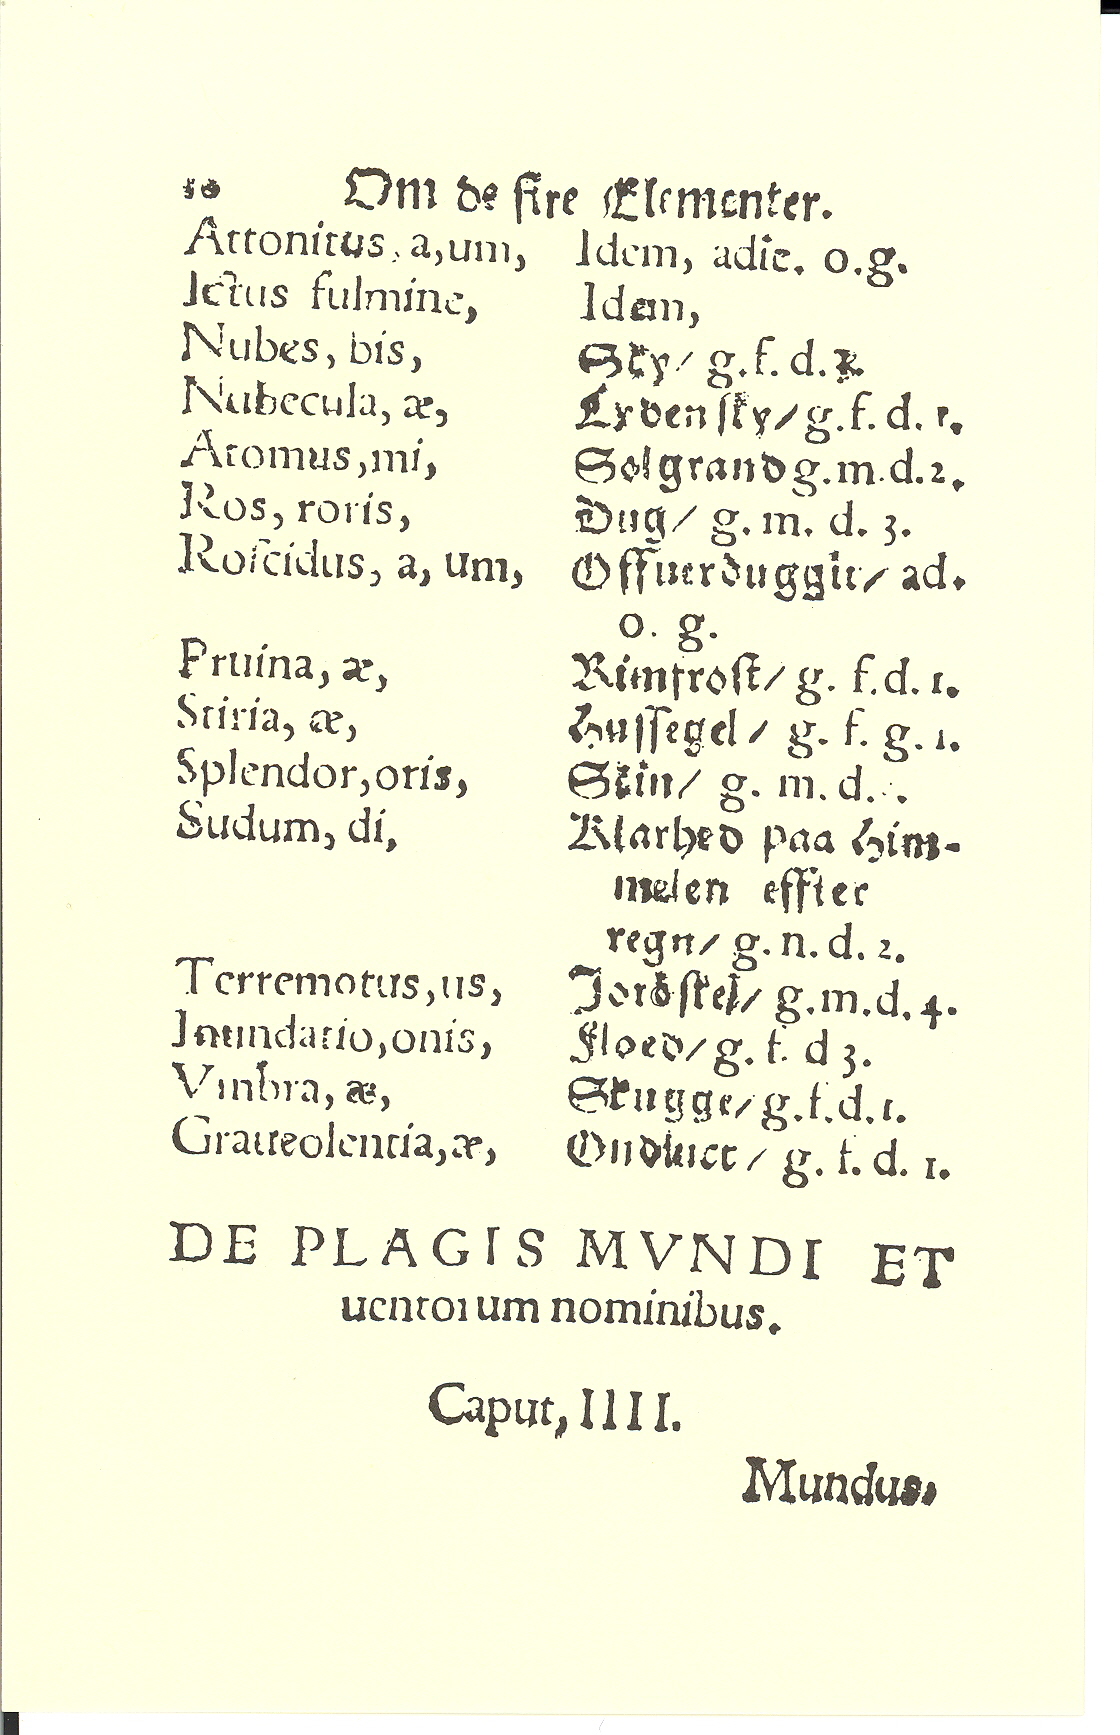 10 Om de fire Elementer.
Attonitus, a, um, Idem, adiec. o.g.
Ictus fulmine, Idem,
Nubes, bis, Sky/ g. f. d.
Nubecula, æ, Lyden sky/ g. f. d. 1.
Atomus, mi, Solgrand g. m. d. 2.
Ros, roris, Dug/ g. m. d. 3.
Roscidus, a, um, Offuerduggit/ ad.
o. g.
Pruina, æ, Rimfrost/ g. f. d. 1.
Stiria, æ, Hussegel/ g. f. g. 1.
Splendor, oris, Skin/ g. m. d.
Sudum, di, Klarhed paa Him-
melen effter
regn/ g. n. d. 2.
Terremotus, us, Jordskel/ g. m. d. 4.
Inundatio, onis, Floed/ g. f. d 3.
Vmbra, æ, Skugge/ g. f. d. 1.
Graueolentia, æ, g. f. d. 1.
DE PLAGIS MVNDI ET
uentorum nominibus.
Caput, IIII.
Mundus,